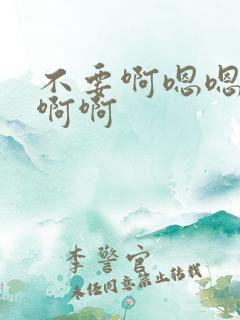 不要啊嗯嗯
啊啊
李警官
未经同意禁止转载